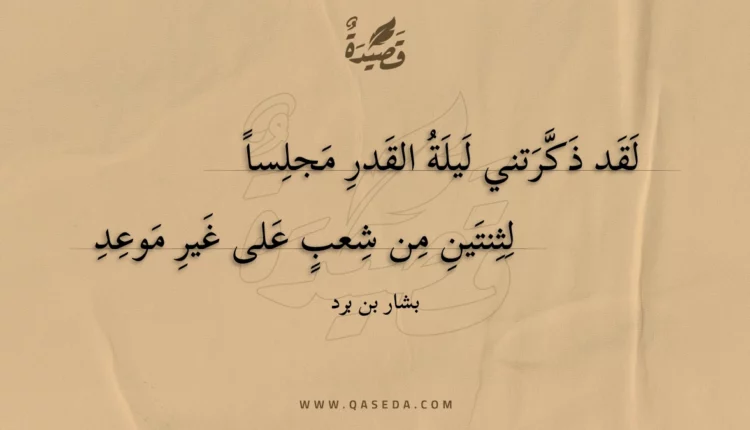 قَصِيْدَةٌ
لَقَد ذَكَّرَتني لَيلَةُ القَدرِ مَجلِساً
لِثِنتَينِ مِن شِعبٍ عَلى غَيرِ مَوعِدِ
بشار بن برد
WWW.QASEDA.COM